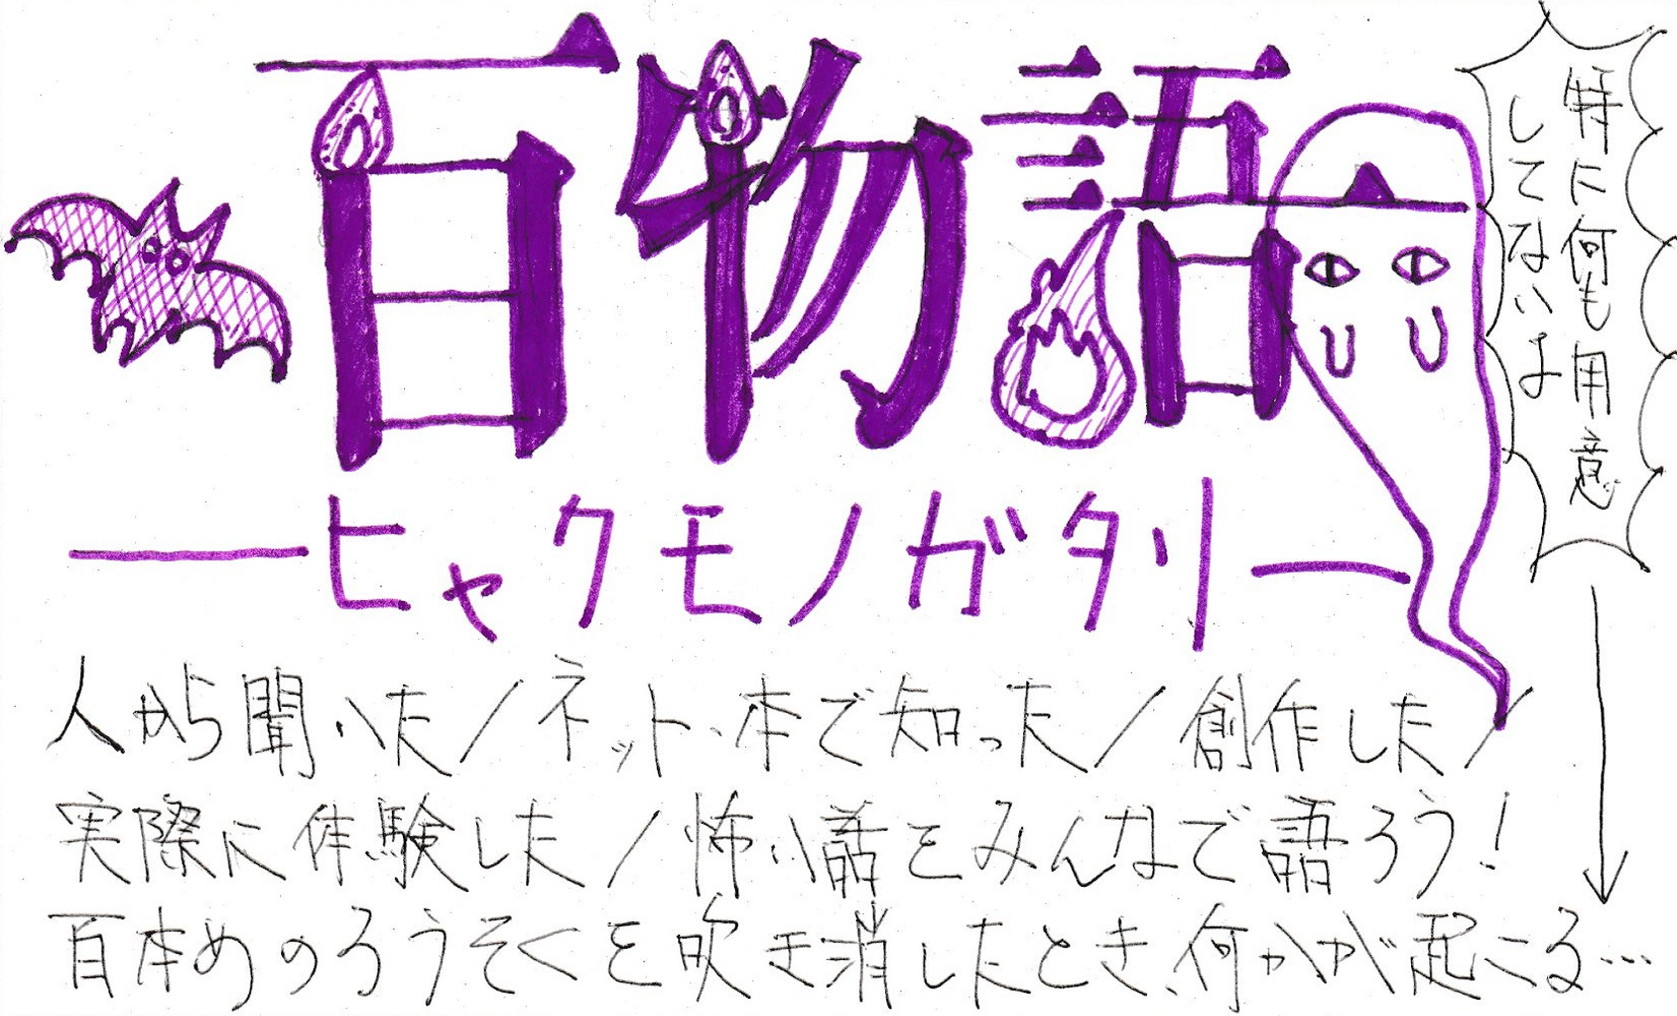 百物語
―ヒャクモノガタリ―
特に何も用意
してないよ
人から聞いた/ネット・本で知った/創作した/
実際に体験した/怖い話をみんなで語ろう!
百本めのろうそくを吹き消したとき、何かが起こる…